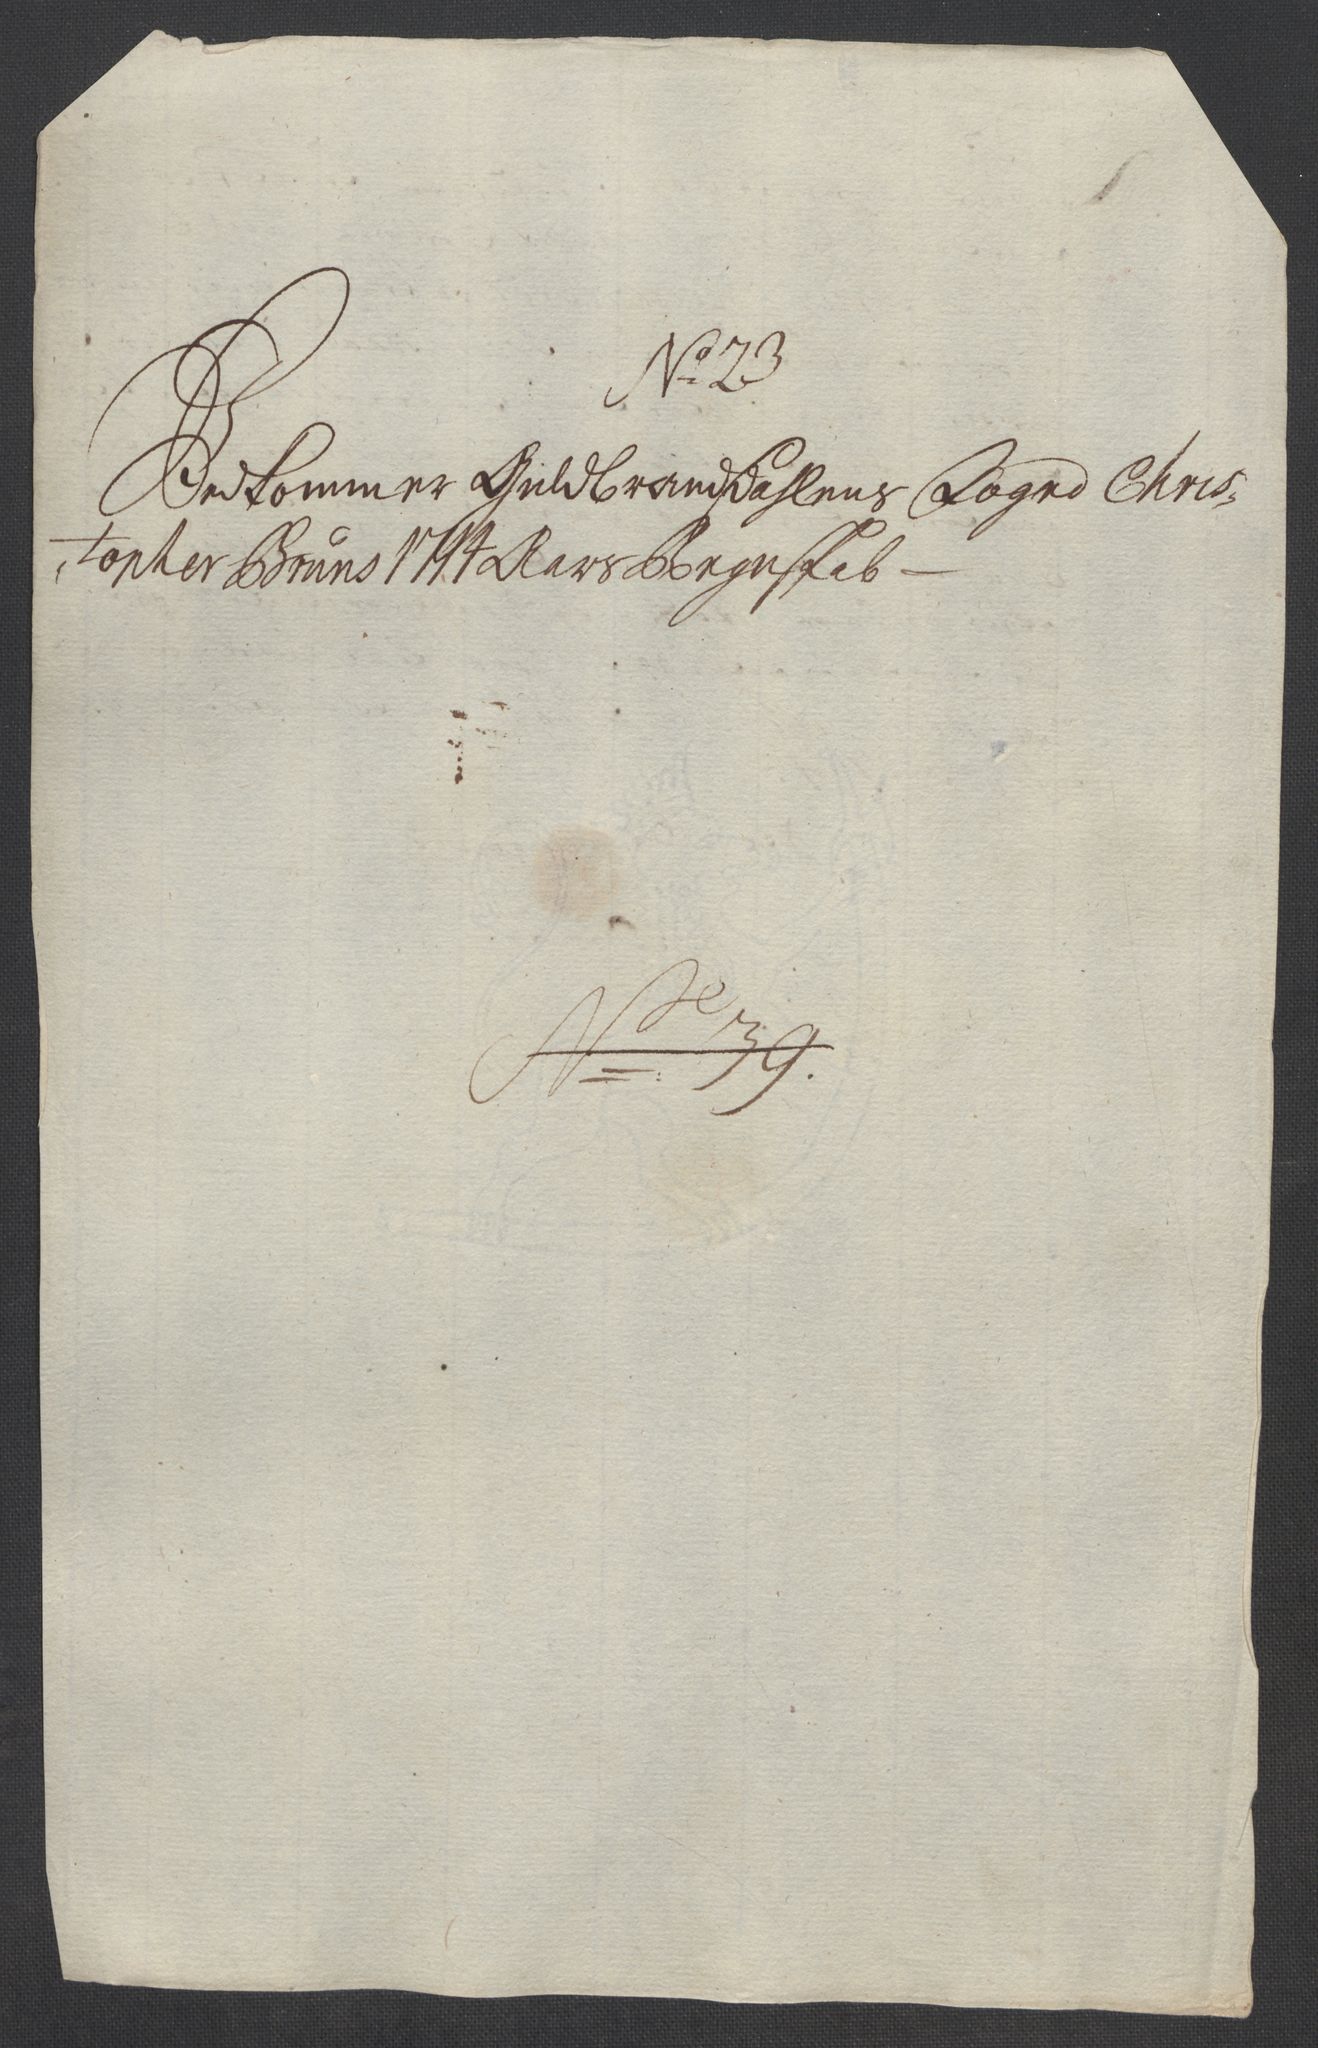 No 23
Vedkommer Guldbrandsdahlens Foged Chris,
,topher Bruns 1714 Aars Regnskab –
No 39.